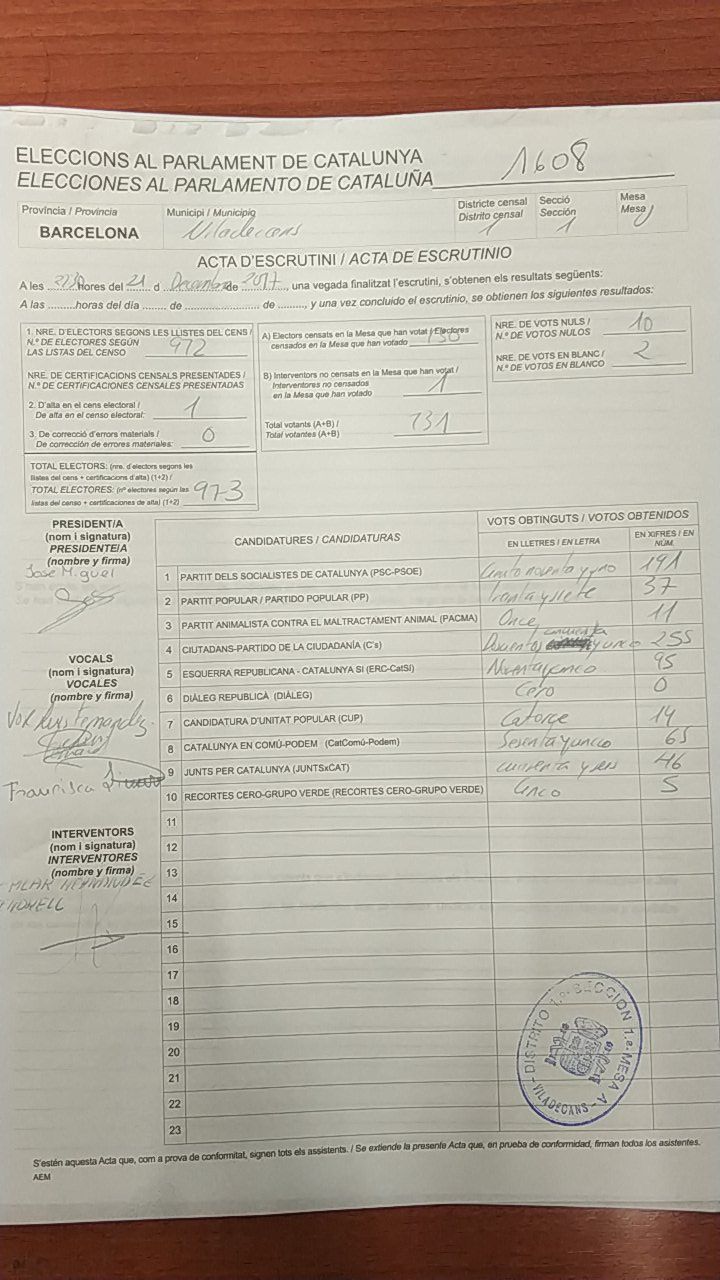 ELECCIONS AL PARLAMENT DE CATALUNYA
ELECCIONES AL PARLAMENTO DE CATALUÑA 1608
Província / Provincia
BARCELONA
Municipi / Municipio
Viladecans
Districte censal
Distrito censal
1
Secció
Sección
1
Mesa
Mesa
ACTA D'ESCRUTINI / ACTA DE ESCRUTINIO
A les hores del 21 d de 2017, una vegada finalitzat l'escrutini, s'obtenen els resultats següents:
A las ..........horas del día ........ de ........................ de .........., y una vez concluido el escrutinio, se obtienen los siguientes resultados:
1. NRE. D'ELECTORS SEGONS LES LLISTES DEL CENS /
N.º DE ELECTORES SEGÚN
LAS LISTAS DEL CENSO 972
NRE. DE CERTIFICACIONS CENSALS PRESENTADES /
N.º DE CERTIFICACIONES CENSALES PRESENTADAS
2. D'alta en el cens electoral /
De alta en el censo electoral: 1
3. De correcció d'errors materials /
De corrección de errores materiales: 0
TOTAL ELECTORS: (nre. d'electors segons les
llistes del cens + certificacions d'alta) (1+2) /
TOTAL ELECTORES: (nº electores según las
listas del censo + certificaciones de alta) (1+2) 973
A) Electors censats en la Mesa que han votat / Electores
censados en la Mesa que han votado 730
B) Interventors no censats en la Mesa que han votat /
Interventores no censados
en la Mesa que han votado 1
Total votants (A+B) /
Total votantes (A+B) 731
NRE. DE VOTS NULS /
N.º DE VOTOS NULOS 10
NRE. DE VOTS EN BLANC /
N.º DE VOTOS EN BLANCO 2
PRESIDENT/A
(nom i signatura)
PRESIDENTE/A
(nombre y firma)
José Miguel
VOCALS
(nom i signatura)
VOCALES
(nombre y firma)
Francisca
INTERVENTORS
(nom i signatura)
INTERVENTORES
(nombre y firma)
CANDIDATURES / CANDIDATURAS
VOTS OBTINGUTS / VOTOS OBTENIDOS
EN LLETRES / EN LETRA
EN XIFRES / EN NÚM.
1 PARTIT DELS SOCIALISTES DE CATALUNYA (PSC-PSOE) Ciento noventa y uno 191
2 PARTIT POPULAR / PARTIDO POPULAR (PP) treinta y siete 37
3 PARTIT ANIMALISTA CONTRA EL MALTRACTAMENT ANIMAL (PACMA) Once 11
4 CIUTADANS-PARTIDO DE LA CIUDADANÍA (C's) Doscientos cincuenta y cinco 255
5 ESQUERRA REPUBLICANA - CATALUNYA SÍ (ERC-CatSí) Noventa y cinco 95
6 DIÀLEG REPUBLICÀ (DIÀLEG) Cero 0
7 CANDIDATURA D'UNITAT POPULAR (CUP) Catorce 14
8 CATALUNYA EN COMÚ-PODEM (CatComú-Podem) Sesenta y cinco 65
9 JUNTS PER CATALUNYA (JUNTSxCAT) cuarenta y seis 46
10 RECORTES CERO-GRUPO VERDE (RECORTES CERO-GRUPO VERDE) Cinco 5
11
12
13
14
15
16
17
18
19
20
21
22
23
DISTRITO 1.º - SECCIÓN 1.ª - MESA A
- VILADECANS -
S'estén aquesta Acta que, com a prova de conformitat, signen tots els assistents. / Se extiende la presente Acta que, en prueba de conformidad, firman todos los asistentes.
AEM